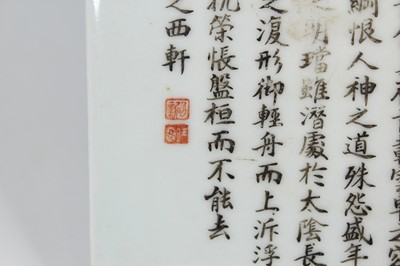 載雲車之容
恨人神之道殊怨盛年
明璫雖潛處於太陰長
之復形御輕舟而上泝浮
抗策悵盤桓而不能去
之西軒